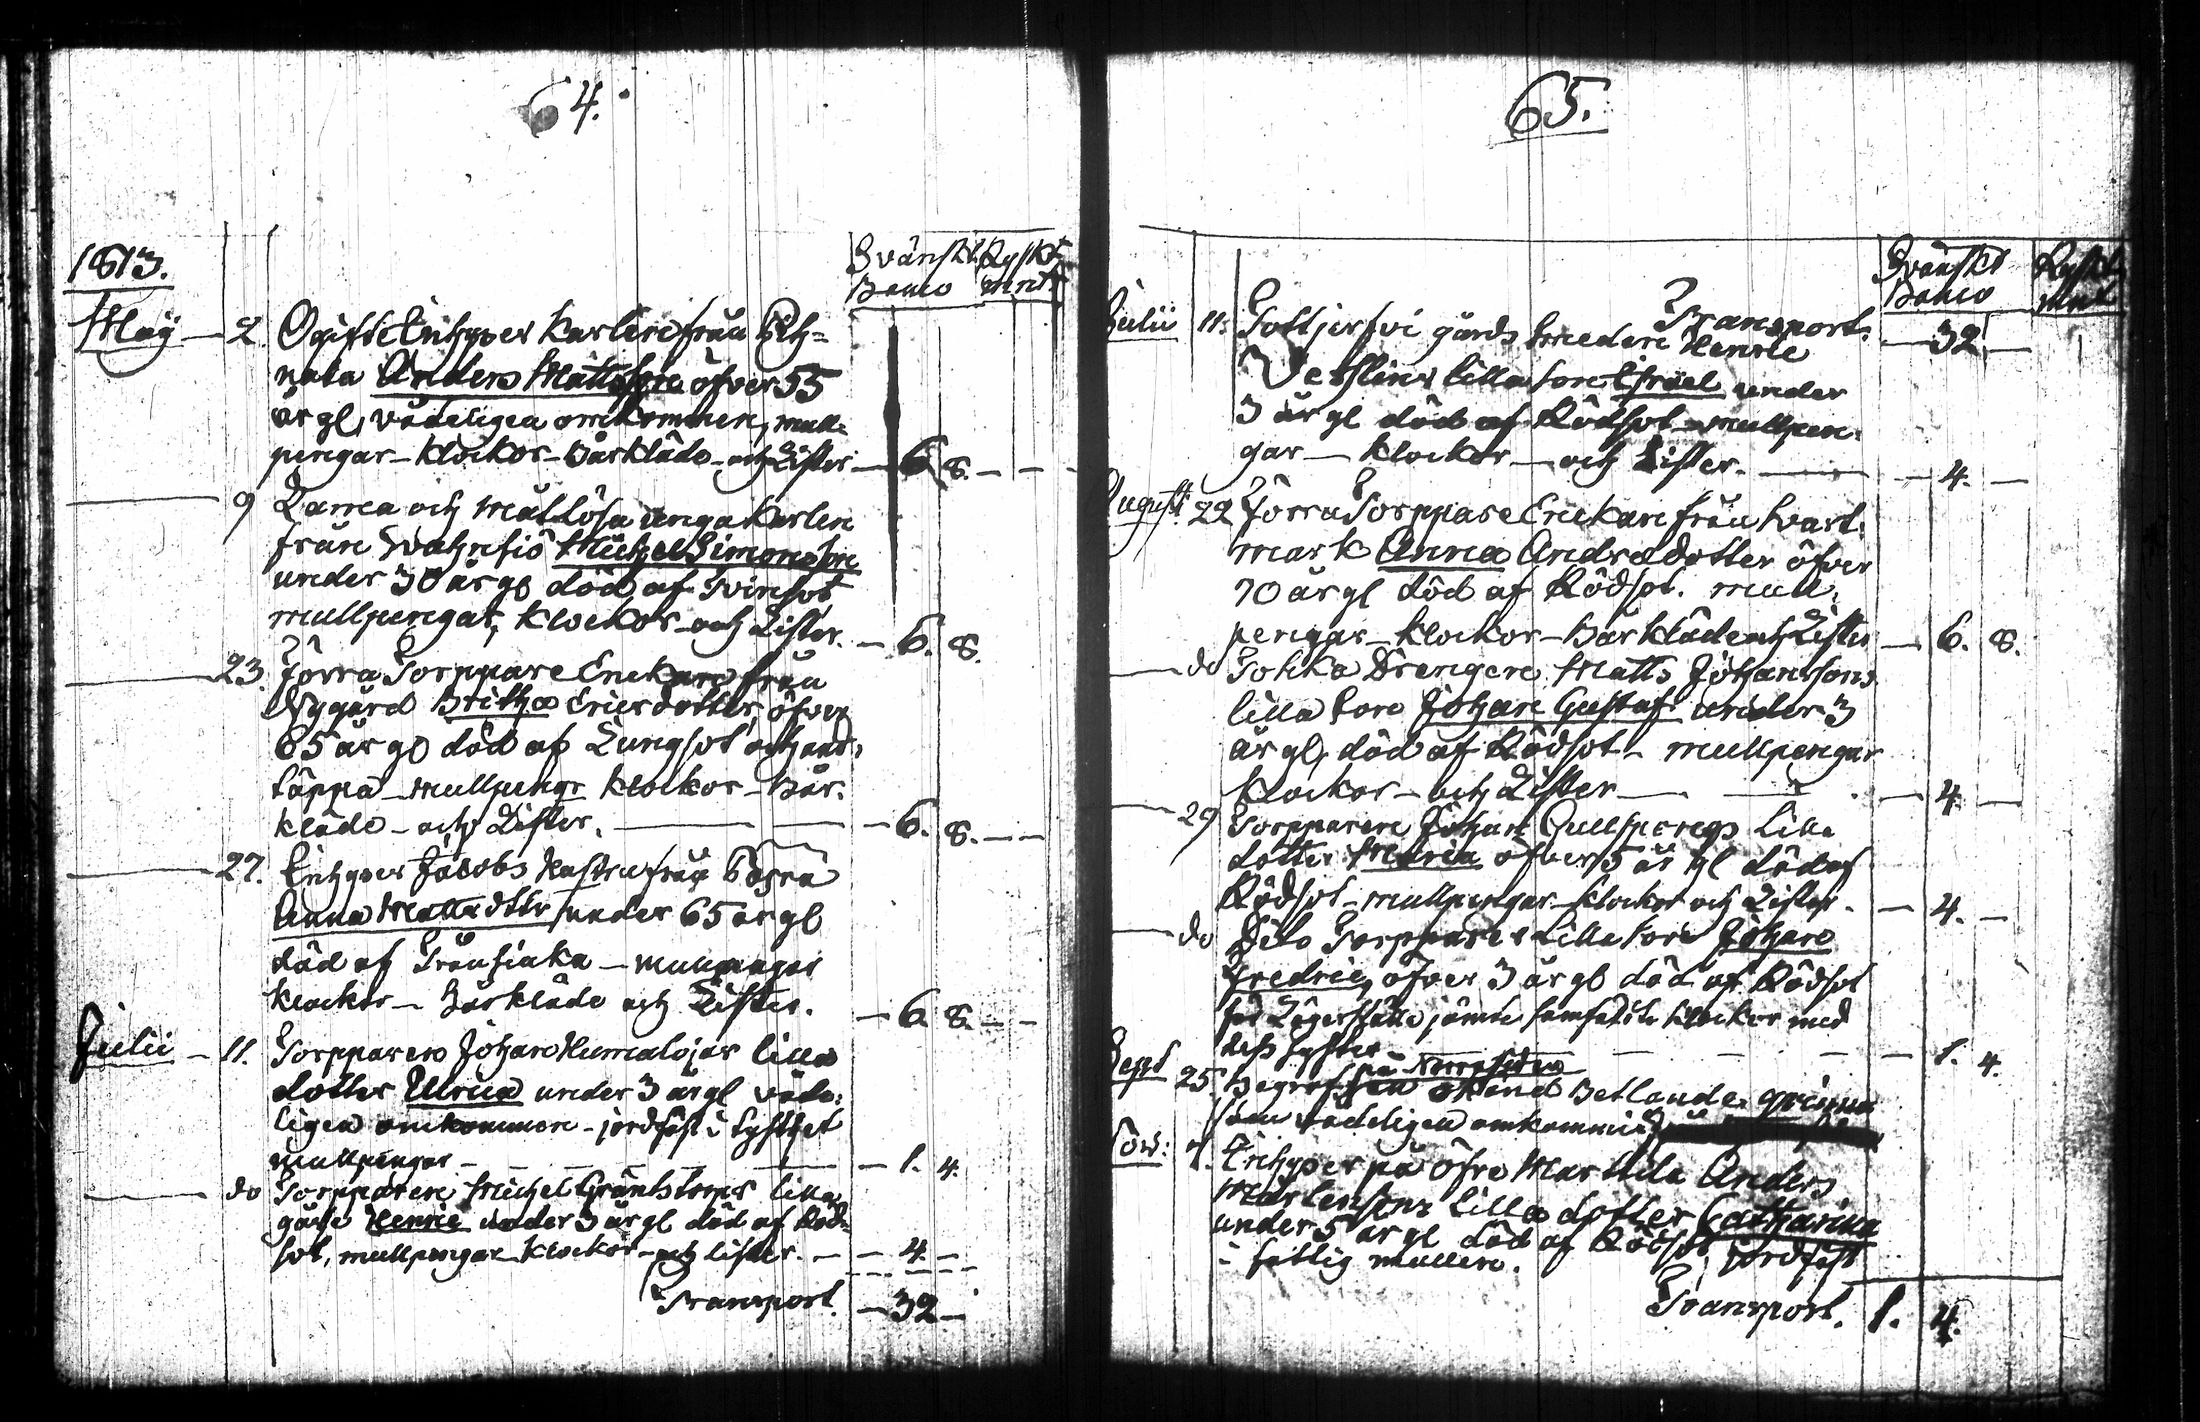 64.
1813.
Svänskt Ryskt
Banco mnt
Maij - 2. Ogifte Inhyses Karlen från
nala Anders Mattsson öfver 55
år gl, vådeligen omkommen, mull-
pengar - Klockor - Bårkläde - och Lister - 6. 8. - -
9 Lama och Mållösa unga Karlen
från Michel Simonsson
under 30 år gl död af Tvinsot
mullpengar, Klockor och Lister. - 6. 8.
23. Förra Torppare Enckan från
Nygård Britha Ericsdotter, öfver
65 år gl död af Lungsot och and-
täppa - mullpengr Klockor - Bår-
kläde - och Lister. - 6. 8. - -
27. Inhyses Jacobs Hustru från
Anna Mattsdttr under 65 år gl
död af Trånsiuka - mullpengar
Klockor - Bårkläde och Lister. - 6. 8. - -
Julii - 11. Torpparens Johan Humalojas lilla
dotter Ulrica under 3 år gl våde-
ligen omkommen - jordfäst i
mullpengar - - 1. 4.
do Torpparen Michel Gränstorps lilla
gåsse Henric under 3 år gl död af Röd-
sot, mullpengar Klockor - och lister. - - 4. -
Transport. - 32 -
65.
Svänskt Ryskt
Banco Mnt
Transport. - 32 -
Julii 11. Tottjerfvi gårds Smeden Henric
Vesslins lilla son Israel under
3 år gl död af Rödsot - mullpen-
gar - Klockor - och Lister. - - 4. -
August: 22 Förra Torppare Enckan från Svart-
mark Anna Andersdotter öfver
70 år gl död af Rödsot. mull-
pengar - Klockor - Bårkläde och Lister - 6. 8.
do Drengen Matts Johanssons
lilla son Johan Gustaf under 3
år gl, död af Rödsot - mullpengar
Klockor - och Lister - - 4 -
29 Torpparen Johan Gullspengs lilla
dotter Maria öfver 5 år gl död af
Rödsot - mullpengar - Klockor och Lister. - 4. -
do Dito Torppares Lilla son Johan
Fredric, öfver 3 år gl död af Rödsot
får Lägerställe jämte samfälte Klockor med
dess Syster - - 1. 4.
Sept 25. Begrofs en okänd Betlande qvinna
på Norrsidan
som vådeligen omkommit
Nov: 7. Inhyses på öfre Marttila Anders
Mårtensons lilla dotter Catharina
under 5 år gl död af Rödsot, jordfäst
i fattig mullen.
Transport. 1. 4.